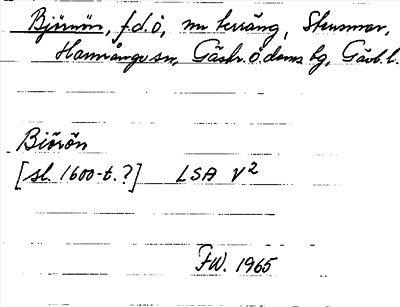 Björnön, f.d.ö, nu terräng, Stensmar,
Hamrånge sn, Gästr.ö.doms.bg, Gävl.l.
Biörön
[sl. 1600-t.?] LSA V²
FW. 1965